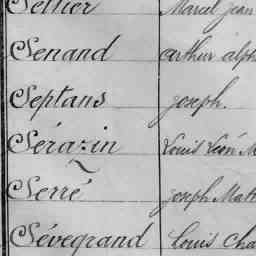 Sellier Marcel Jean
Senand Arthur Alph
Septans Joseph.
Sérazin Louis Léon M
Serré Joseph Math
Sévegrand Louis Cha